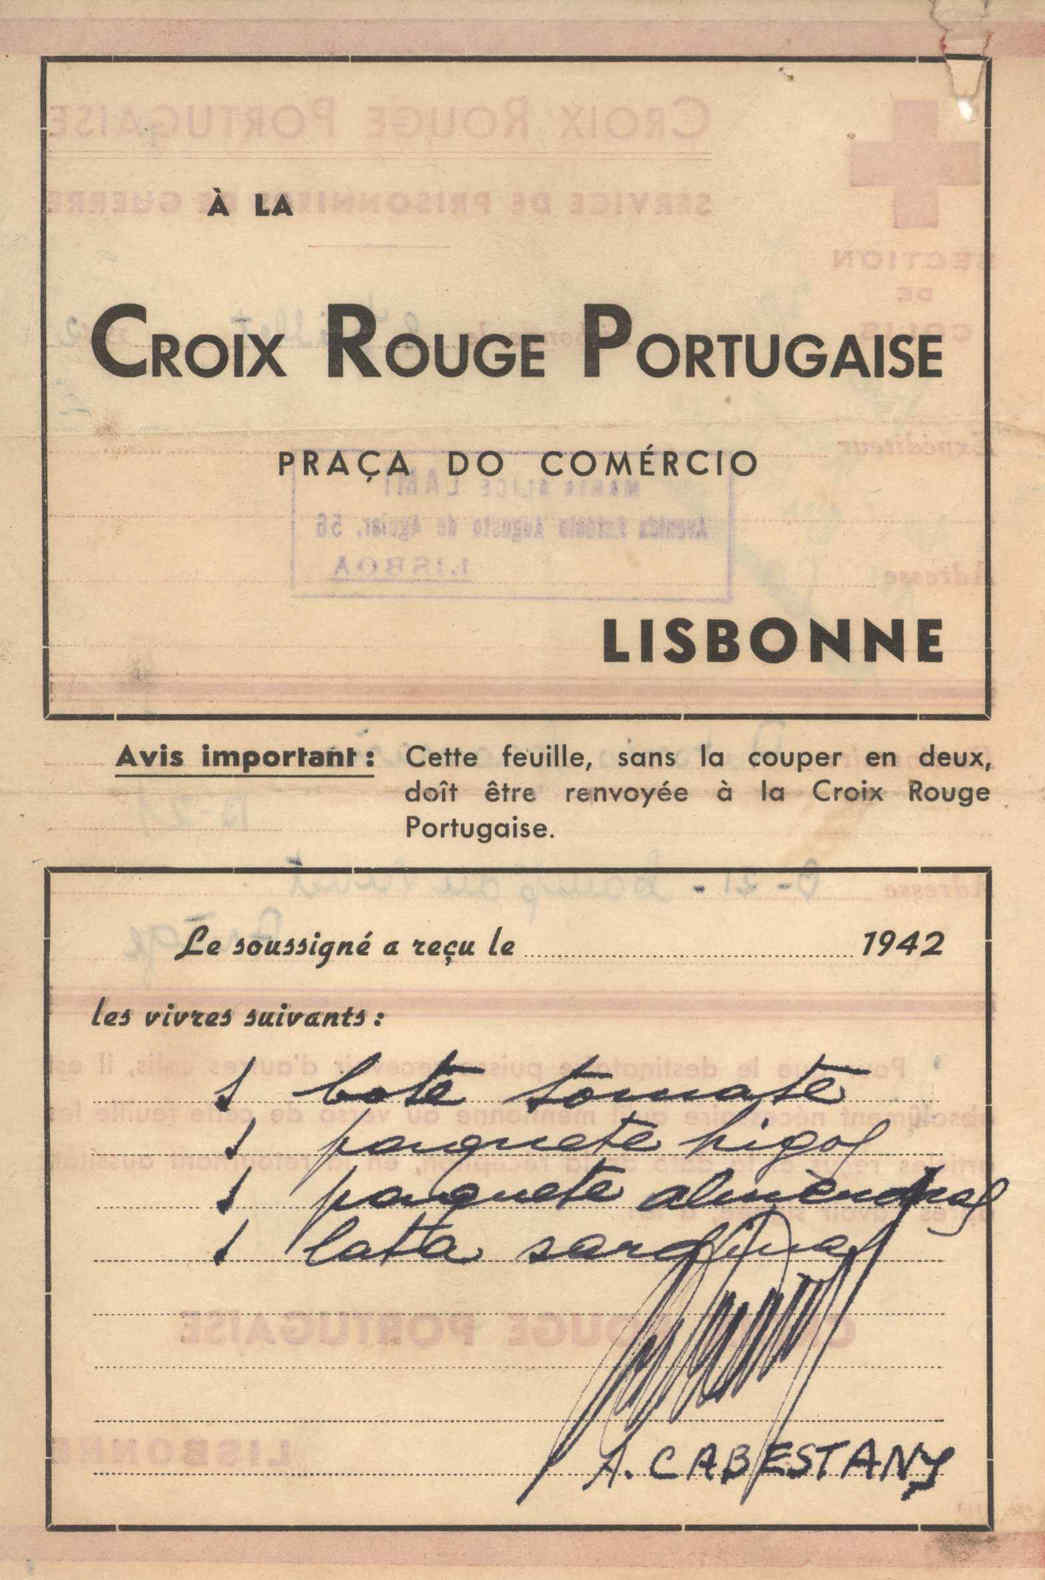 À LA
CROIX ROUGE PORTUGAISE
PRAÇA DO COMÉRCIO
LISBONNE
Avis important: Cette feuille, sans la couper en deux,
doît être renvoyée à la Croix Rouge
Portugaise.
Le soussigné a reçu le 1942
les vivres suivants:
1 bote tomate
1 paquete higos
1 paquete almendras
1 lata sardinas
A. CABESTANY